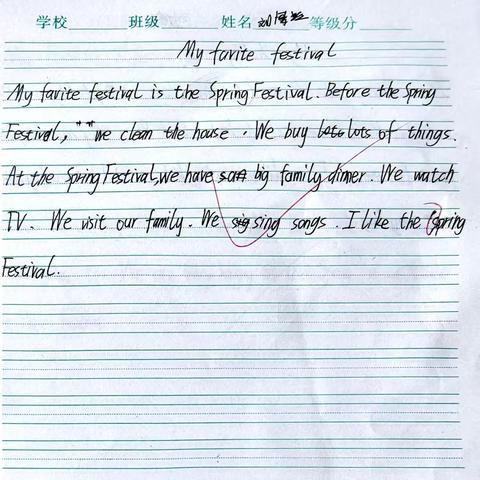 学校 班级 姓名 等级分
My favite festival
My favite festival is the Spring Festival. Before the Spring
Festival, we clean the house. We buy lots of things.
At the Spring Festival,we have big family dinner. We watch
TV. We visit our family. We sing songs. I like the Spring
Festival.